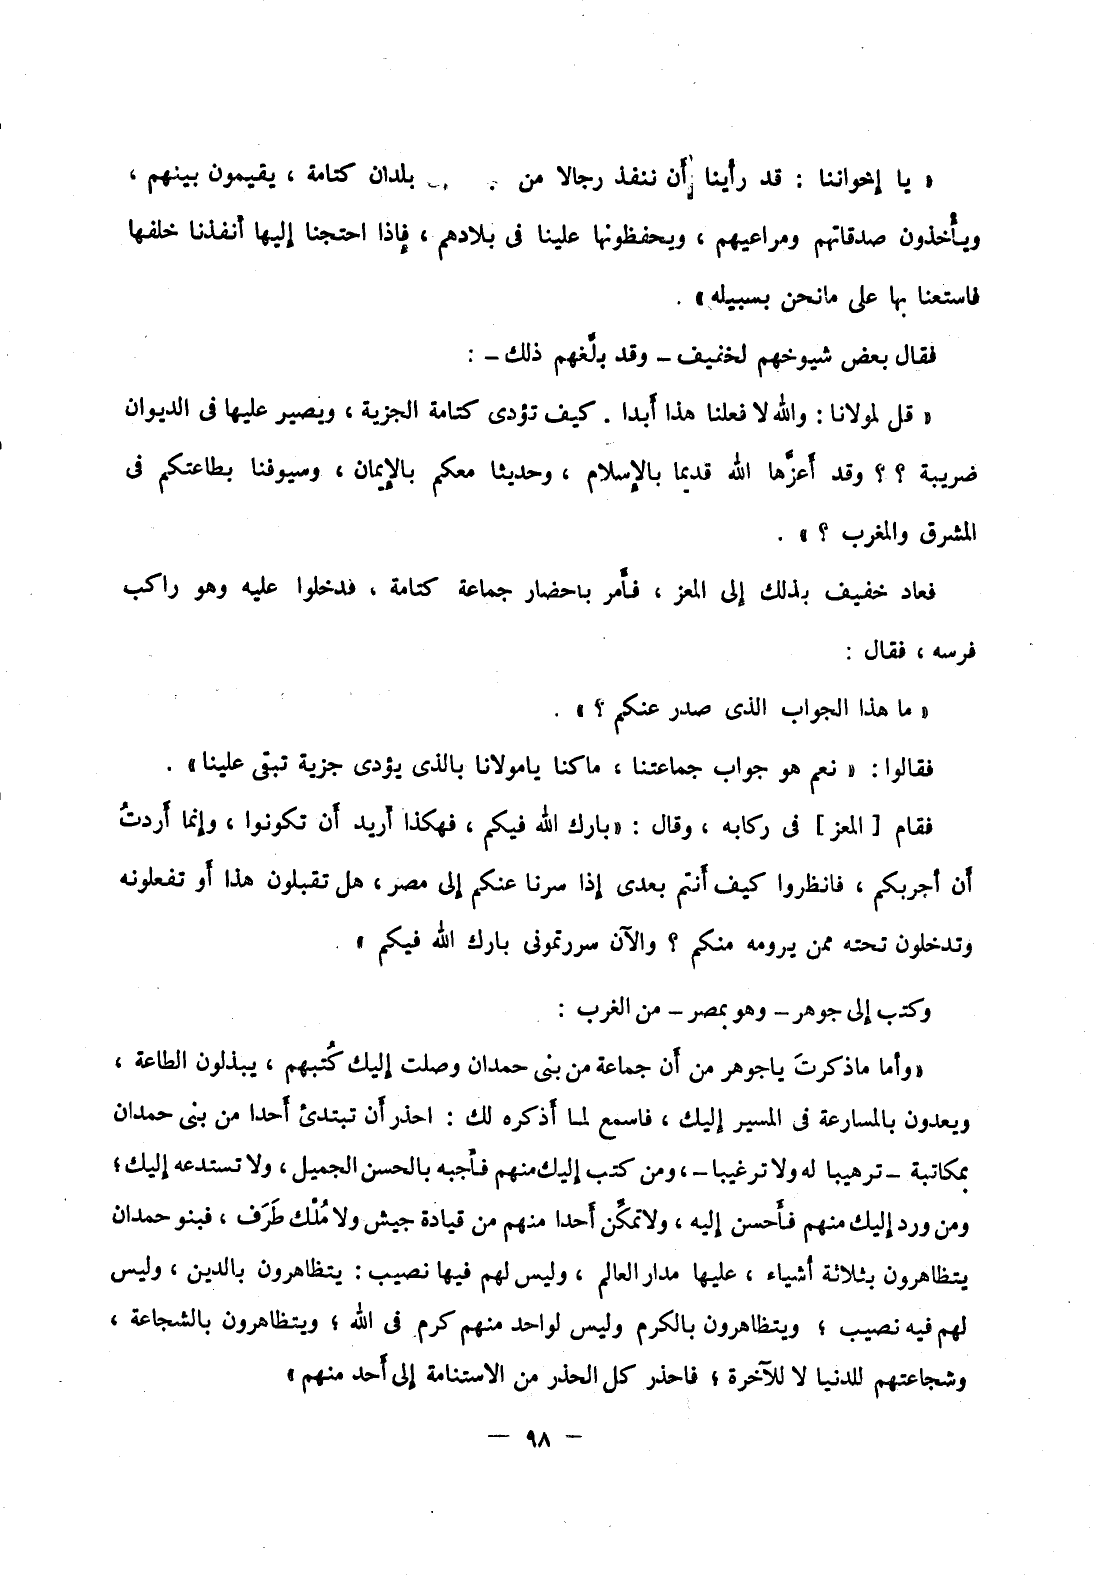 « يا إخواننا : قد رأينا أن ننفذ رجالا من بلدان كتامة ، يقيمون بينهم ،
ويأخذون صدقاتهم ومراعيهم ، ويحفظونها علينا فى بلادهم ، فإذا احتجنا إليها أنفذنا خلفها
فاستعنا بها على مانحن بسبيله » .
فقال بعض شيوخهم لخفيف – وقد بلَّغهم ذلك – :
« قل لمولانا : والله لا فعلنا هذا أبدا . كيف تؤدى كتامة الجزية ، ويصير عليها فى الديوان
ضريبة ؟ ؟ وقد أعزَّها الله قديما بالإسلام ، وحديثا معكم بالإيمان ، وسيوفنا بطاعتكم فى
المشرق والمغرب ؟ » .
فعاد خفيف بذلك إلى المعز ، فأمر باحضار جماعة كتامة ، فدخلوا عليه وهو راكب
فرسه ، فقال :
« ما هذا الجواب الذى صدر عنكم ؟ » .
فقالوا : « نعم هو جواب جماعتنا ، ماكنا يامولانا بالذى يؤدى جزية تبقى علينا » .
فقام [ المعز ] فى ركابه ، وقال : « بارك الله فيكم ، فهكذا أريد أن تكونوا ، وإنما أردتُ
أن أجربكم ، فانظروا كيف أنتم بعدى إذا سرنا عنكم إلى مصر ، هل تقبلون هذا أو تفعلونه
وتدخلون تحته ممن يرومه منكم ؟ والآن سررتمونى بارك الله فيكم » .
وكتب إلى جوهر – وهو بمصر – من الغرب :
« وأما ماذكرتَ ياجوهر من أن جماعة من بنى حمدان وصلت إليك كُتبهم ، يبذلون الطاعة ،
ويعدون بالمسارعة فى المسير إليك ، فاسمع لما أذكره لك : احذر أن تبتدئ أحدا من بنى حمدان
بمكاتبة – ترهيبا له ولا ترغيبا – ، ومن كتب إليك منهم فأجبه بالحسن الجميل ، ولا تستدعه إليك ؛
ومن ورد إليك منهم فأحسن إليه ، ولاتمكِّن أحدا منهم من قيادة جيش ولا مُلْك طَرَف ، فبنو حمدان
يتظاهرون بثلاثة أشياء ، عليها مدار العالم ، وليس لهم فيها نصيب : يتظاهرون بالدين ، وليس
لهم فيه نصيب ؛ ويتظاهرون بالكرم وليس لواحد منهم كرم فى الله ؛ ويتظاهرون بالشجاعة ،
وشجاعتهم للدنيا لا للآخرة ؛ فاحذر كل الحذر من الاستنامة إلى أحد منهم »
– ٩٨ –